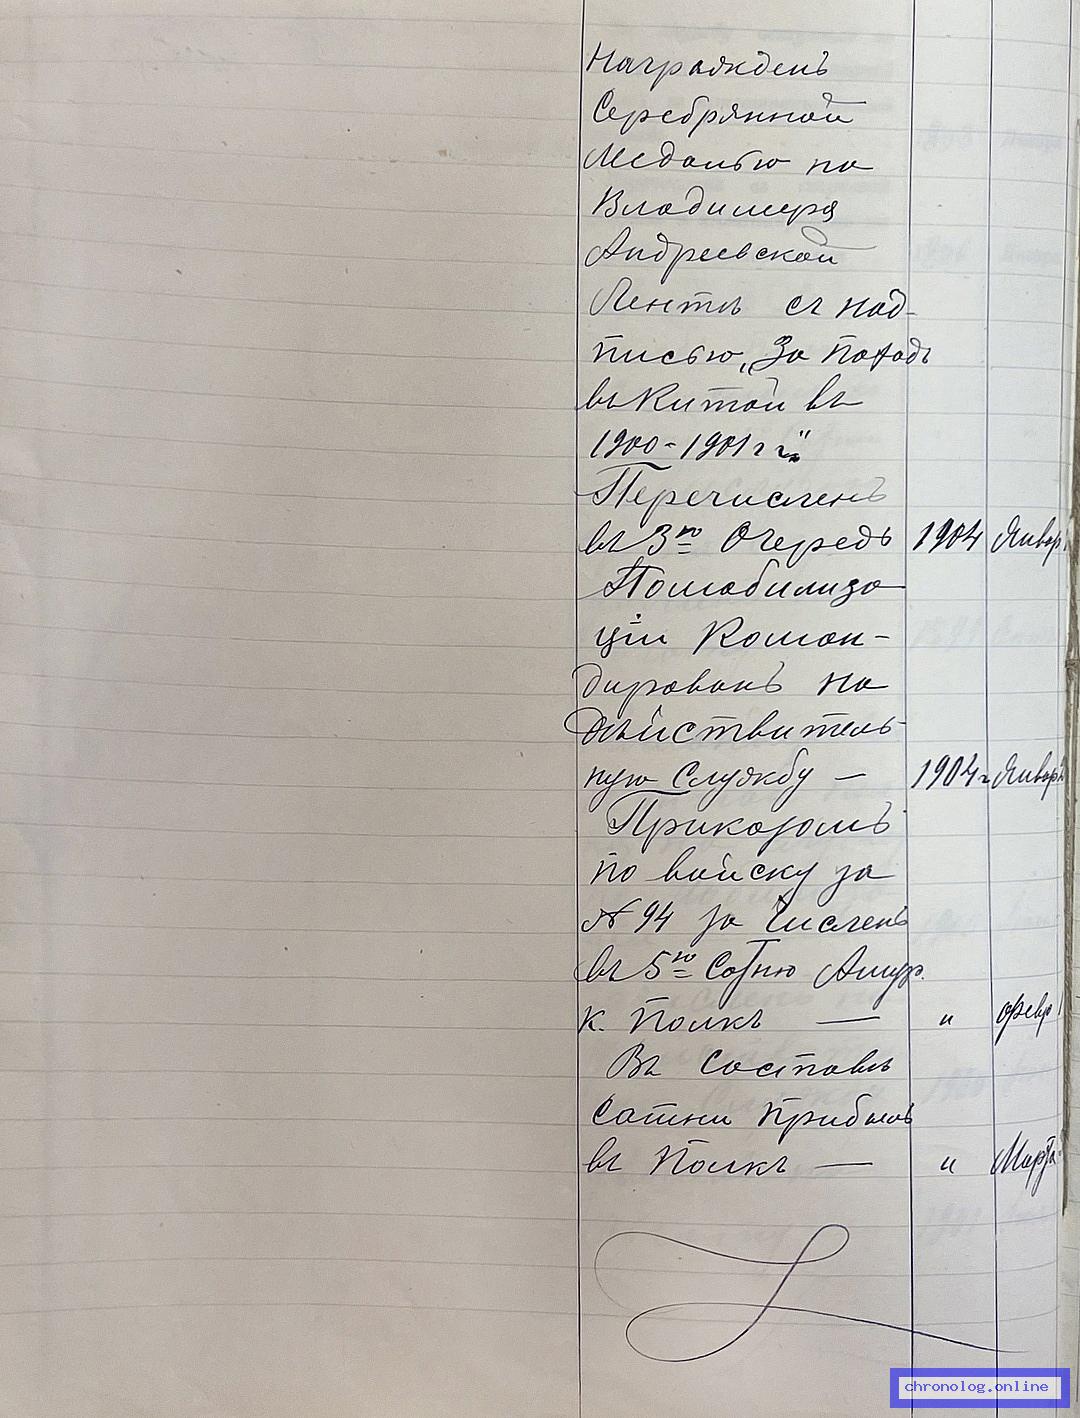 Награжденъ
Серебрянной
Медалью на
Владимера
Андреевской
Лентѣ съ над-
писью „За Походъ
въ Китай въ
1900-1901 г г."
Перечисленъ
въ 3ю Очередь 1904 Январ
По мобилиза
ціи Коман-
дированъ на
дѣйствитель
ную Службу — 1904 г Январ
Приказомъ
по войску за
№ 94 за Численъ
въ 5ю Сотню Амур.
к. Полкъ — „ февр
Въ Составѣ
Сотни Прибылъ
въ Полкъ — „ Марта
chronolog.online